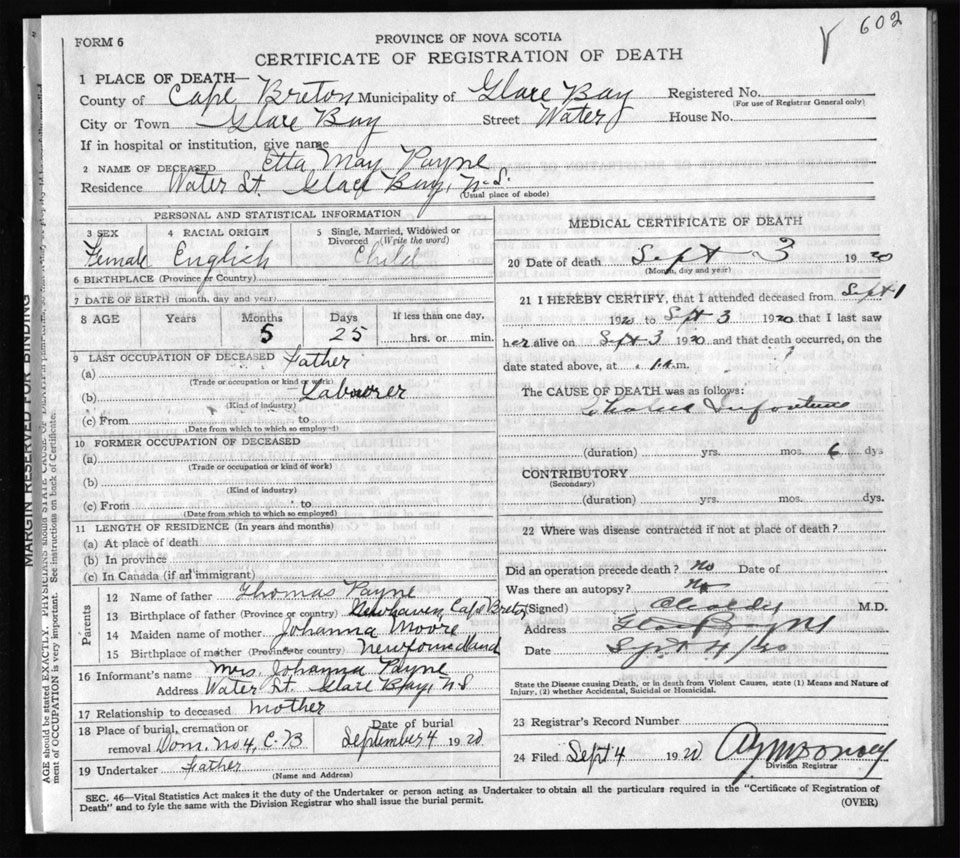 602
FORM 6
PROVINCE OF NOVA SCOTIA
CERTIFICATE OF REGISTRATION OF DEATH
1 PLACE OF DEATH—
County of Cape Breton Municipality of Glace Bay Registered No.
(For use of Registrar General only)
City or Town Glace Bay Street Water House No.
If in hospital or institution, give name
2 NAME OF DECEASED Etta May Payne
Residence Water St. Glace Bay, N.S.
(Usual place of abode)
PERSONAL AND STATISTICAL INFORMATION
3 SEX 4 RACIAL ORIGIN 5 Single, Married, Widowed or Divorced (Write the word)
Female English Child
6 BIRTHPLACE (Province or Country)
7 DATE OF BIRTH (month, day and year)
8 AGE Years Months Days If less than one day,
5 25 hrs. or min.
9 LAST OCCUPATION OF DECEASED Father
(a)
(Trade or occupation or kind of work)
(b) Labourer
(Kind of industry)
(c) From to
(Date from which to which so employed)
10 FORMER OCCUPATION OF DECEASED
(a)
(Trade or occupation or kind of work)
(b)
(Kind of industry)
(c) From to
(Date from which to which so employed)
11 LENGTH OF RESIDENCE (In years and months)
(a) At place of death
(b) In province
(c) In Canada (if an immigrant)
Parents
12 Name of father Thomas Payne
13 Birthplace of father (Province or country) Newhaven, Cape Breton
14 Maiden name of mother Johanna Moore
15 Birthplace of mother (Province or country) Newfoundland
16 Informant's name Mrs. Johanna Payne
Address Water St. Glace Bay, N S
17 Relationship to deceased Mother
18 Place of burial, cremation or removal Dom. No 4, C.B
Date of burial
September 4 1920
19 Undertaker Father
(Name and Address)
MEDICAL CERTIFICATE OF DEATH
20 Date of death Sept 3 1920
(Month, day and year)
21 I HEREBY CERTIFY, that I attended deceased from Sept 1
1920 to Sept 3 1920 that I last saw
her alive on Sept 3 1920 and that death occurred, on the
date stated above, at m.
The CAUSE OF DEATH was as follows:
(duration) yrs. mos. 6 dys
CONTRIBUTORY
(Secondary)
(duration) yrs. mos. dys.
22 Where was disease contracted if not at place of death?
Did an operation precede death? no Date of
Was there an autopsy? no
(Signed) M.D.
Address Glace Bay NS
Date Sept 4/20
State the Disease causing Death, or in death from Violent Causes, state (1) Means and Nature of
Injury, (2) whether Accidental, Suicidal or Homicidal.
23 Registrar's Record Number
24 Filed Sept 4 1920
Division Registrar
SEC. 46—Vital Statistics Act makes it the duty of the Undertaker or person acting as Undertaker to obtain all the particulars required in the "Certificate of Registration of
Death" and to fyle the same with the Division Registrar who shall issue the burial permit.
(OVER)
MARGIN RESERVED FOR BINDING
AGE should be stated EXACTLY. PHYSICIANS should STATE CAUSE OF DEATH
ment of OCCUPATION is very important. See instructions on back of Certificate.